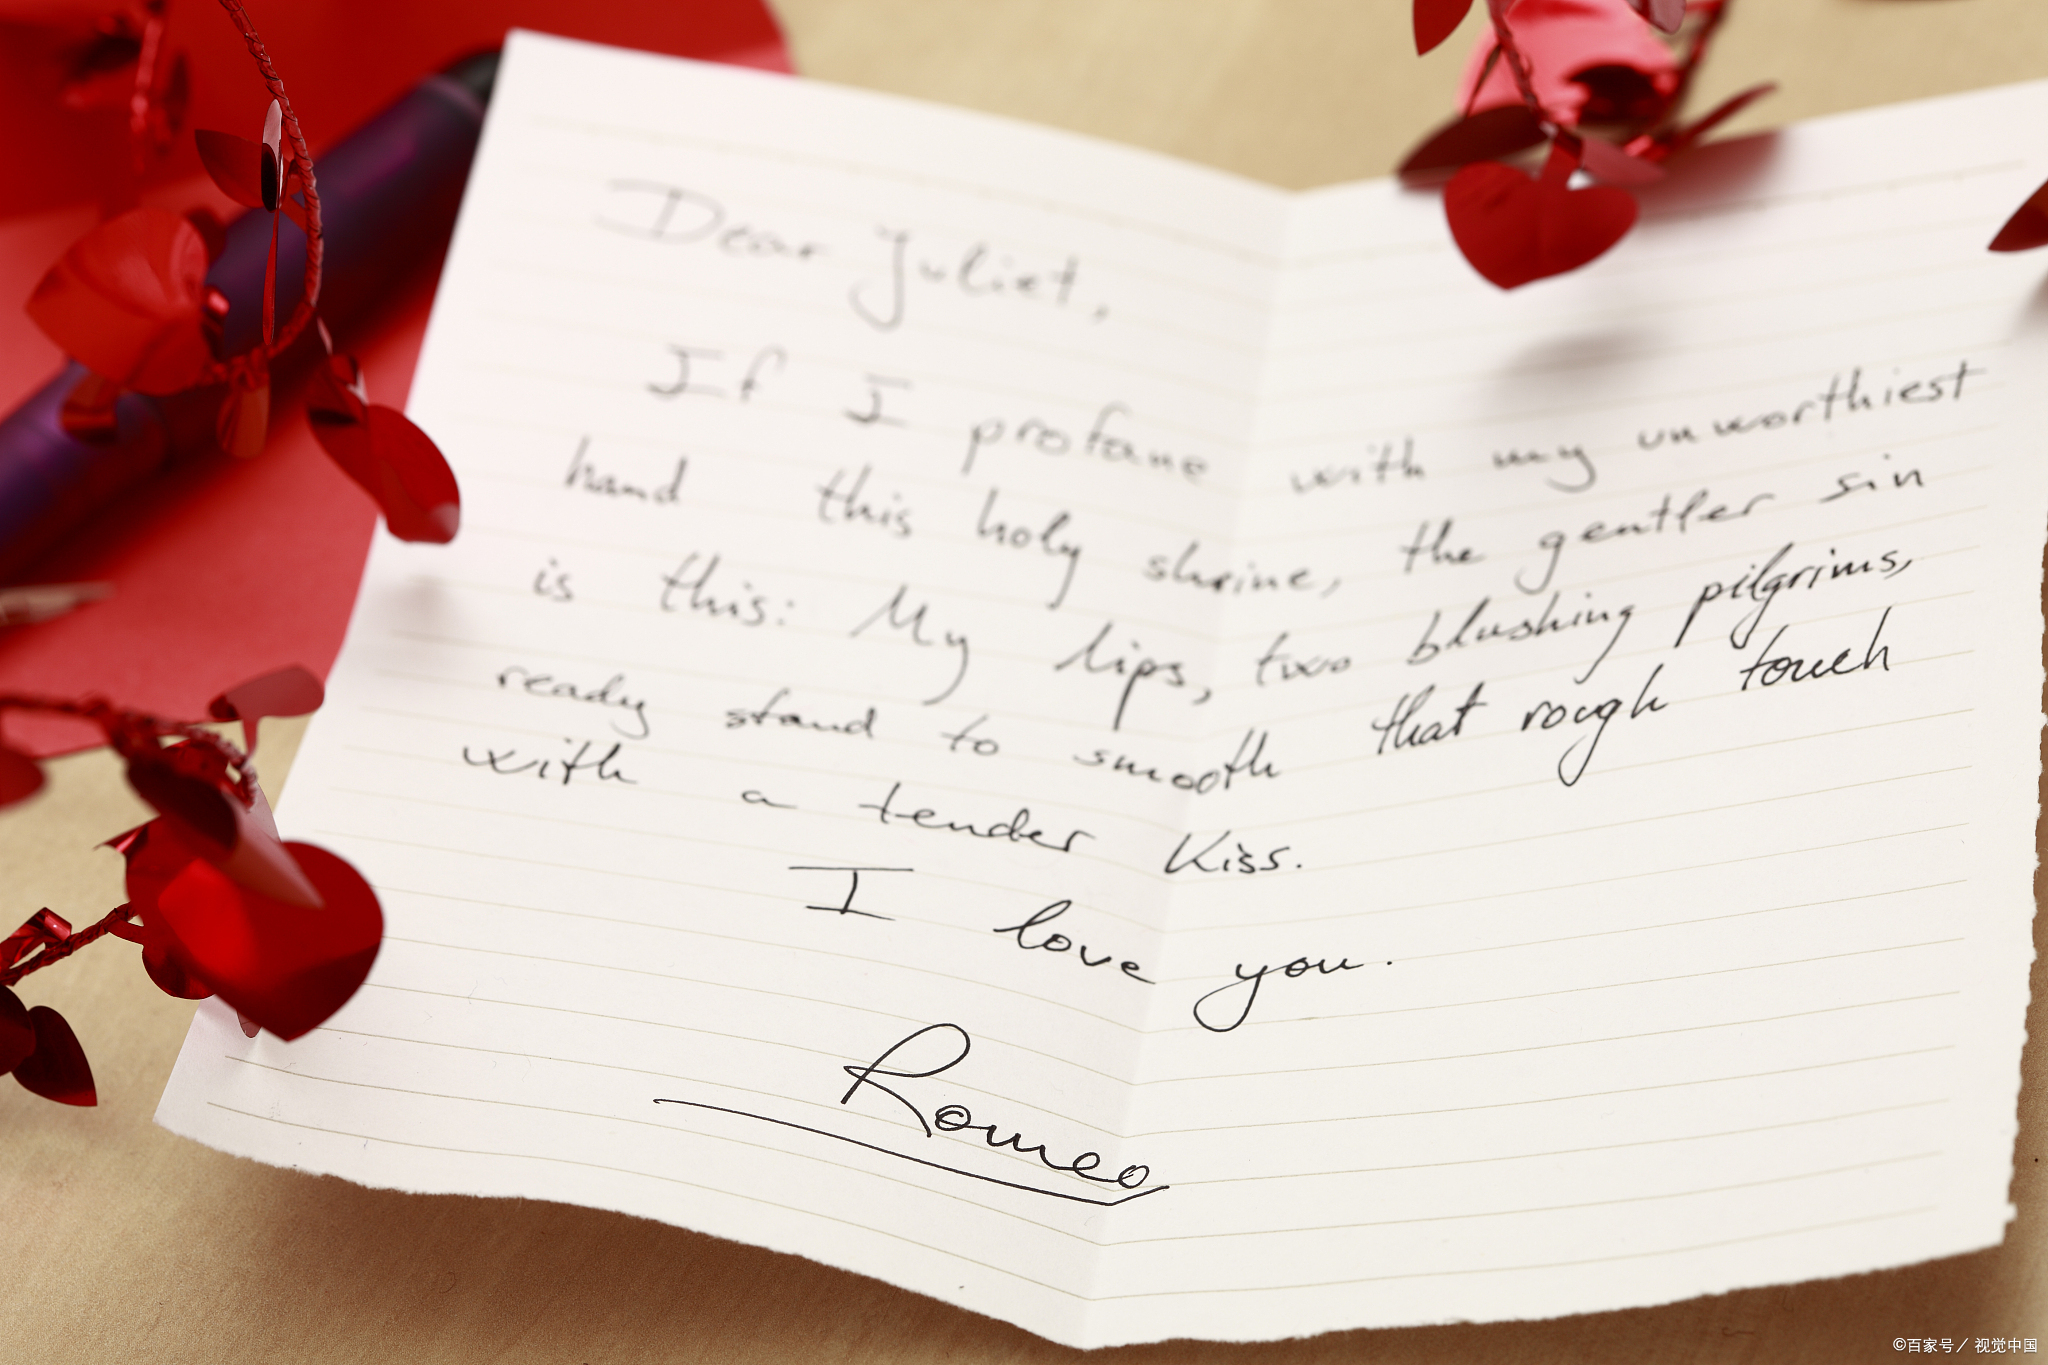 Dear Juliet,
If I profane with my unworthiest
hand this holy shrine, the gentler sin
is this: My lips, two blushing pilgrims,
ready stand to smooth that rough touch
with a tender kiss.
I love you.
Romeo
©百家号／视觉中国